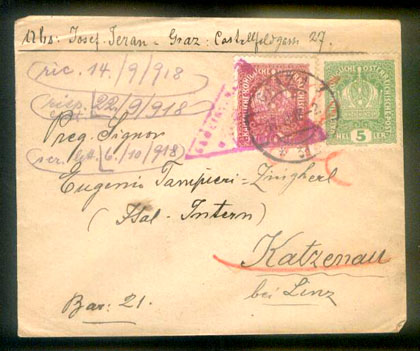 Abs. Josef Teran - Graz: Castellfeldgasse 27.
ric. 14./9/918
risp. 22/9/918
Preg. Signor
6./10/918)
Eugenio Tampieri-Zingherl
(Ital. Intern)
Katzenau
bei Linz
Bar: 21.
5
HEL LER